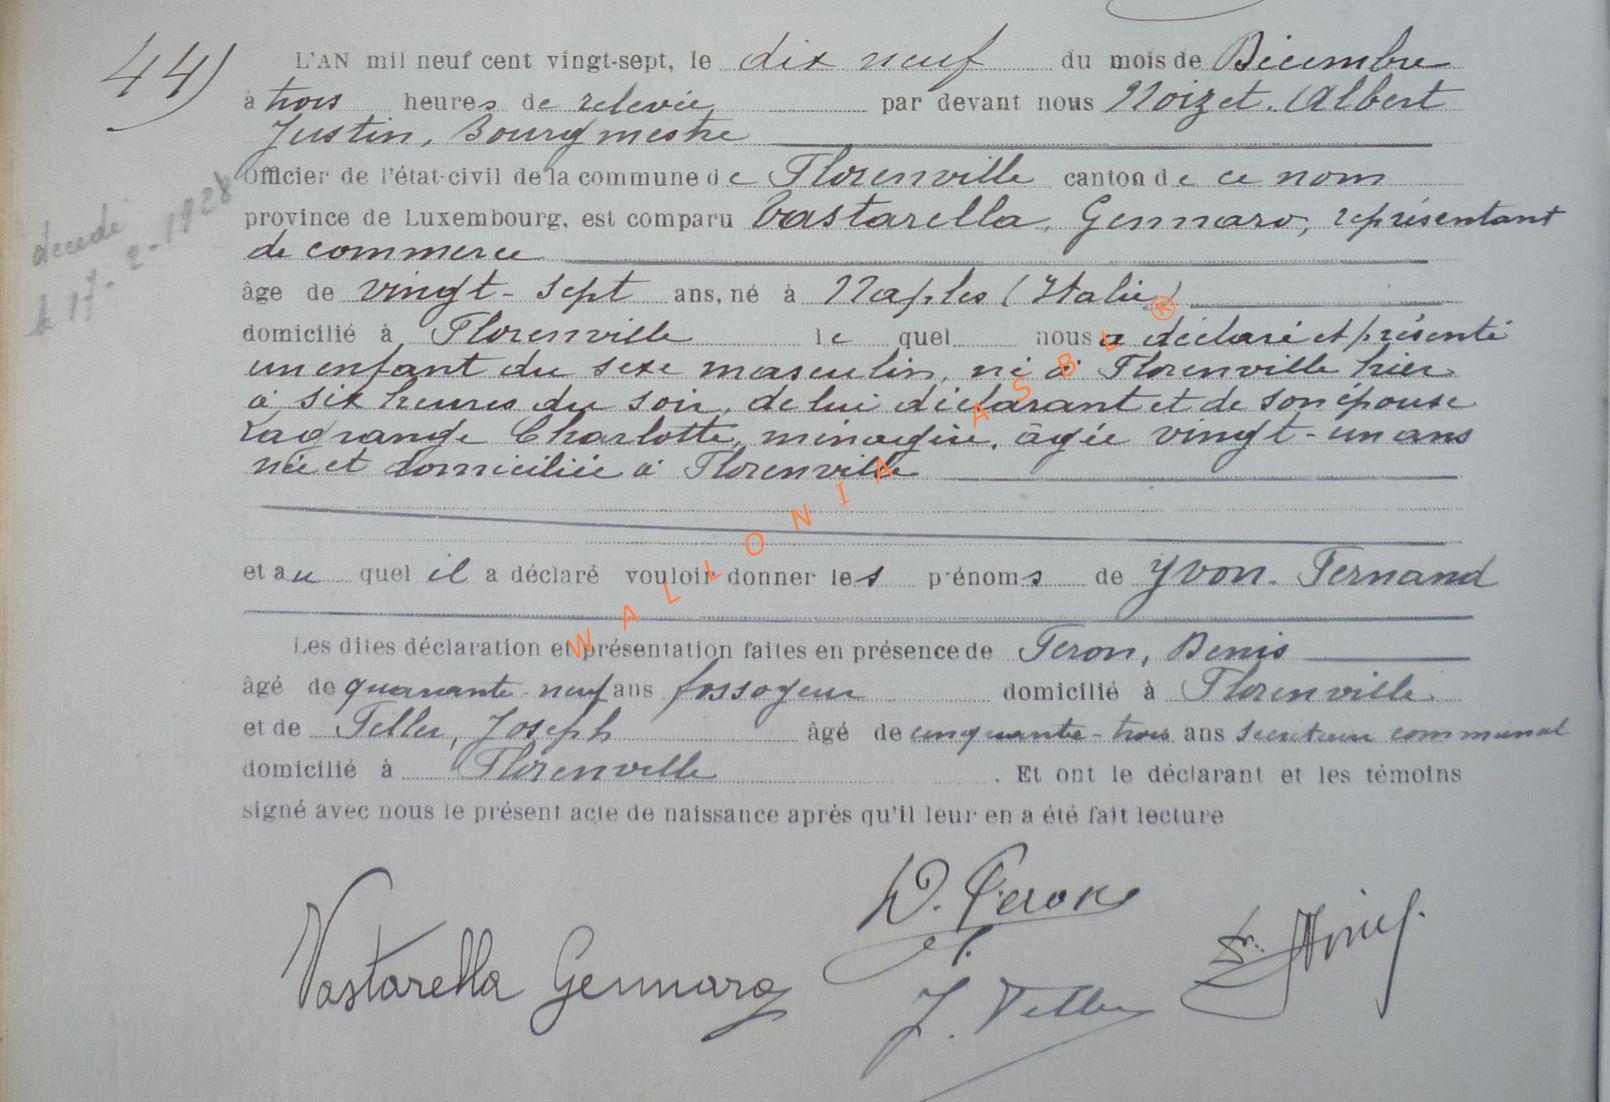 44)
L'AN mil neuf cent vingt-sept, le dix neuf du mois de Décembre
à trois heures de relevée par devant nous Noizet. Albert
Justin, Bourgmestre
Officier de l'état-civil de la commune de Florenville canton de ce nom
province de Luxembourg, est comparu Vastarella, Gennaro, représentant
de commerce
décédé
le 17-2-1928
âge de vingt-sept ans, né à Naples (Italie)
domicilié à Florenville le quel nous a déclaré et présenté
un enfant du sexe masculin, né à Florenville hier
à six heures du soir, de lui déclarant et de son épouse
Lagrange Charlotte, ménagère, âgée vingt-un ans
née et domiciliée à Florenville
et au quel il a déclaré vouloir donner les prénoms de Yvon-Fernand
Les dites déclaration et présentation faites en présence de Feron, Denis
âgé de quarante-neuf ans fossoyeur domicilié à Florenville
et de Feller, Joseph âgé de cinquante-trois ans secrétaire communal
domicilié à Florenville. Et ont le déclarant et les témoins
signé avec nous le présent acte de naissance après qu'il leur en a été fait lecture
WALLONIA ASBL ®
D. Feron
Vastarella Gennaro
J. Feller